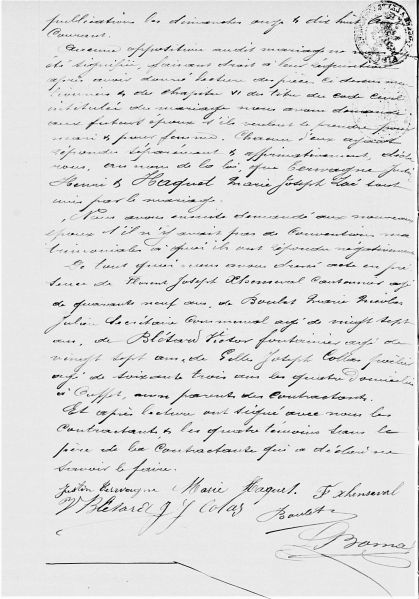 publications les dimanches onze & dix huit
Courant.
Aucune opposition audit mariage ne
été signifiée, faisant droit à leur réquisition
après avoir donné lecture des pièces ci dessus men
tionnées & du chapitre VI du titre du code civil
intitulé du mariage nous avons demandé
aux futurs époux s'ils veulent se prendre pour
mari & pour femme. Chacun d'eux ayant
répondu séparément & affirmativement,
nous, au nom de la loi, que Servaeyne
Henri & Haquet Marie Joseph sont
unis par le mariage.
Nous avons ensuite demandé aux nouveaux
époux s'il n'y avait pas de conventions ma
trimoniales à quoi ils ont répondu négativement
De tout quoi nous avons dressé acte en pré
sence de Joseph Xhenseval Cantonnier agé
de quarante neuf ans, de Boulet Marie Nicolas
Julien Secrétaire Communal agé de vingt sept
ans, de Blétard Victor agé de
vingt sept ans, de Gille Joseph Colas
agé de soixante trois ans les quatre domiciliés
à Ouffet, non parents des Contractants.
Et après lecture ont signé avec nous les
Contractants & les quatre témoins sauf le
père de la Contractante qui a déclaré ne
savoir le faire.
Marie Haquet. F Xhenseval
V Blétard G J Colas Boulet